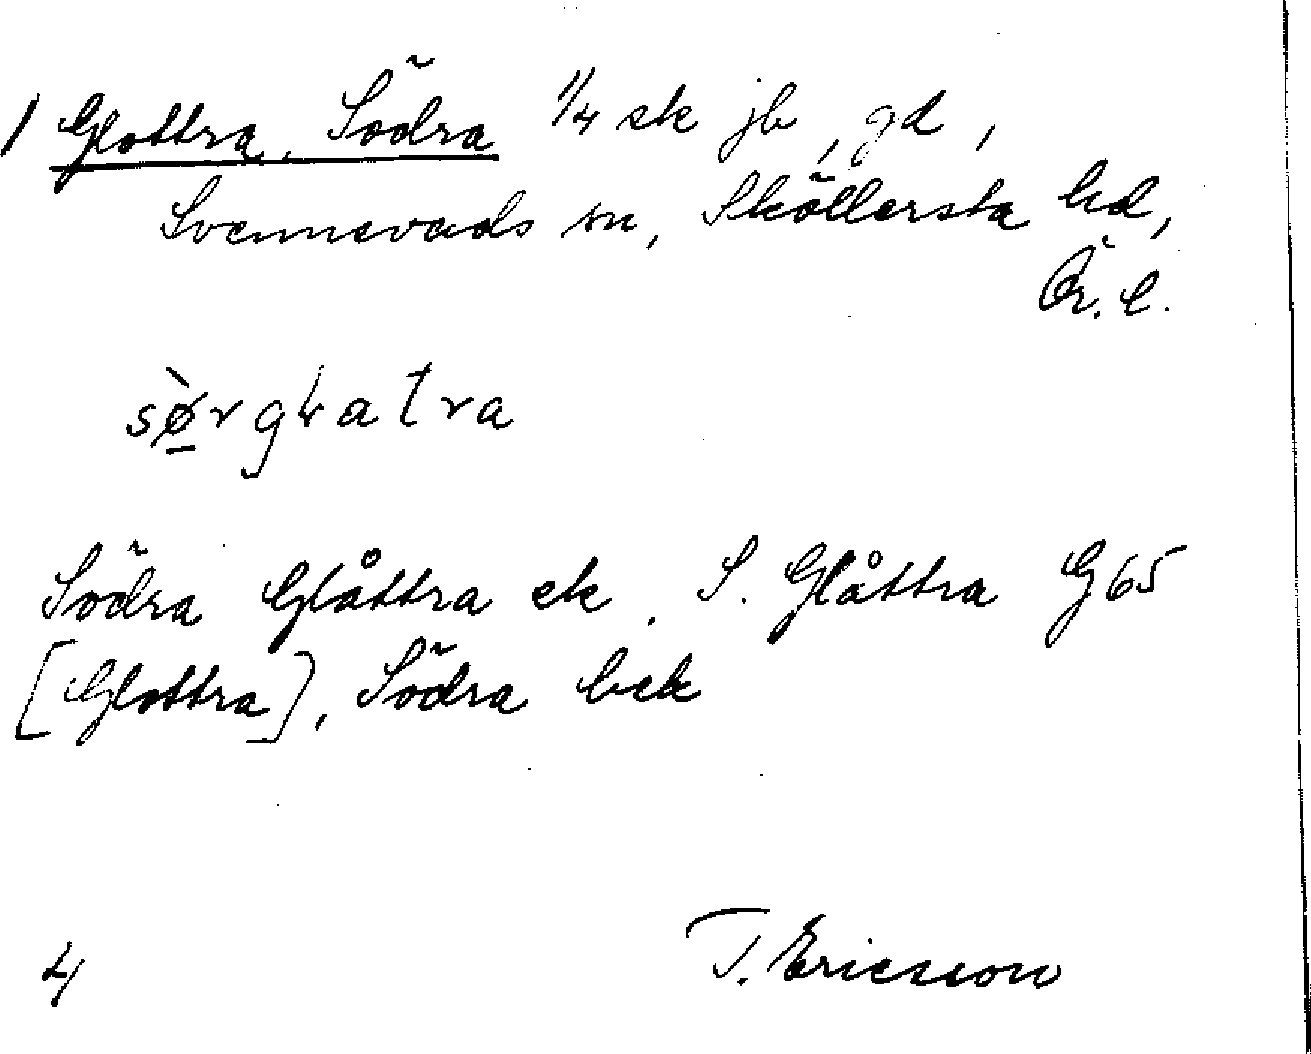 1 Glottra, Södra 1/4 sk jb, gd,
Svennevads sn, Sköllersta hd,
Ör. l.
Södra Glåttra ek. S. Glåttra G65
[Glottra], Södra bek
4
T. Ericsson